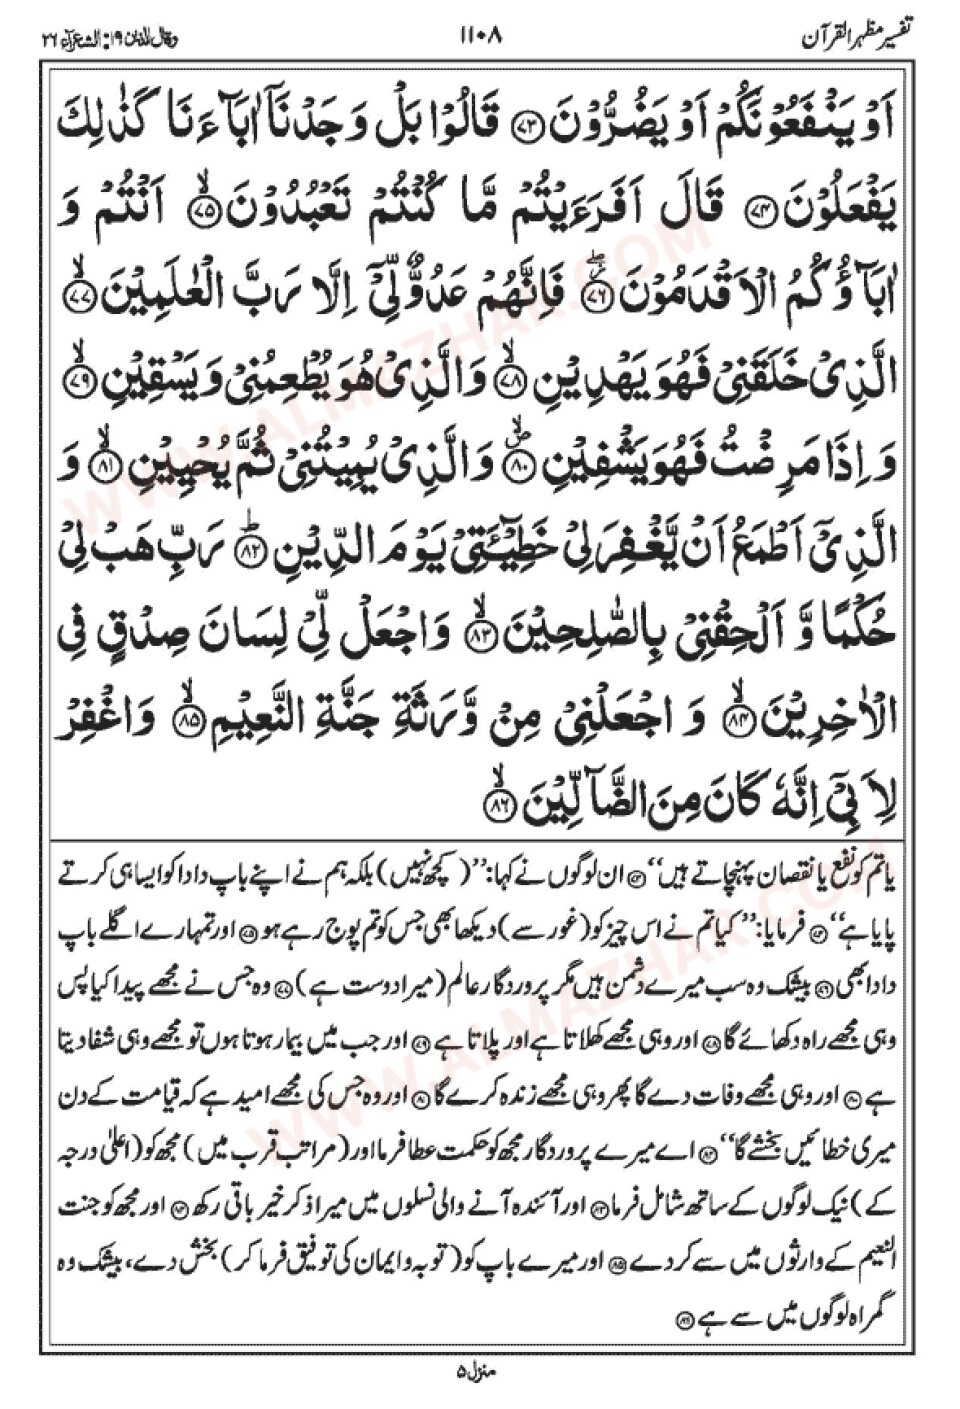 تفسیر مظہر القرآن
۱۱۰۸
وقال الذین ۱۹: الشعرآء ۲۶
اَوْ يَنْفَعُوْنَكُمْ اَوْ يَضُرُّوْنَ ﴿۷۳﴾ قَالُوْا بَلْ وَجَدْنَاۤ اٰبَآءَنَا كَذٰلِكَ
يَفْعَلُوْنَ ﴿۷۴﴾ قَالَ اَفَرَءَيْتُمْ مَّا كُنْتُمْ تَعْبُدُوْنَ ﴿۷۵﴾ۙ اَنْتُمْ وَ
اٰبَآؤُكُمُ الْاَقْدَمُوْنَ ﴿۷۶﴾ۖ فَاِنَّهُمْ عَدُوٌّ لِّيْۤ اِلَّا رَبَّ الْعٰلَمِيْنَ ﴿۷۷﴾ۙ
الَّذِيْ خَلَقَنِيْ فَهُوَ يَهْدِيْنِ ﴿۷۸﴾ۙ وَالَّذِيْ هُوَ يُطْعِمُنِيْ وَيَسْقِيْنِ ﴿۷۹﴾ۙ
وَاِذَا مَرِضْتُ فَهُوَ يَشْفِيْنِ ﴿۸۰﴾ۙ وَالَّذِيْ يُمِيْتُنِيْ ثُمَّ يُحْيِيْنِ ﴿۸۱﴾ۙ وَ
الَّذِيْۤ اَطْمَعُ اَنْ يَّغْفِرَ لِيْ خَطِيْٓئَتِيْ يَوْمَ الدِّيْنِ ﴿۸۲﴾ؕ رَبِّ هَبْ لِيْ
حُكْمًا وَّ اَلْحِقْنِيْ بِالصّٰلِحِيْنَ ﴿۸۳﴾ۙ وَاجْعَلْ لِّيْ لِسَانَ صِدْقٍ فِي
الْاٰخِرِيْنَ ﴿۸۴﴾ۙ وَ اجْعَلْنِيْ مِنْ وَّرَثَةِ جَنَّةِ النَّعِيْمِ ﴿۸۵﴾ۙ وَاغْفِرْ
لِاَبِيْۤ اِنَّهٗ كَانَ مِنَ الضَّآلِّيْنَ ﴿۸۶﴾ۙ
یا تم کو نفع یا نقصان پہنچاتے ہیں‘‘ ﴿۷۳﴾ ان لوگوں نے کہا: ’’(کچھ نہیں) بلکہ ہم نے اپنے باپ دادا کو ایسا ہی کرتے
پایا ہے‘‘ ﴿۷۴﴾ فرمایا: ’’کیا تم نے اس چیز کو (غور سے) دیکھا بھی جس کو تم پوج رہے ہو ﴿۷۵﴾ اور تمہارے اگلے باپ
دادا بھی ﴿۷۶﴾ بیشک وہ سب میرے دشمن ہیں مگر پروردگار عالم (میرا دوست ہے) ﴿۷۷﴾ وہ جس نے مجھے پیدا کیا پس
وہی مجھے راہ دکھائے گا ﴿۷۸﴾ اور وہی مجھے کھلاتا ہے اور پلاتا ہے ﴿۷۹﴾ اور جب میں بیمار ہوتا ہوں تو مجھے وہی شفا دیتا
ہے ﴿۸۰﴾ اور وہی مجھے وفات دے گا پھر وہی مجھے زندہ کرے گا ﴿۸۱﴾ اور وہ جس کی مجھے امید ہے کہ قیامت کے دن
میری خطائیں بخشے گا‘‘ ﴿۸۲﴾ اے میرے پروردگار مجھ کو حکمت عطا فرما اور (مراتب قرب میں) مجھ کو (اعلیٰ درجہ
کے) نیک لوگوں کے ساتھ شامل فرما ﴿۸۳﴾ اور آئندہ آنے والی نسلوں میں میرا ذکر خیر باقی رکھ ﴿۸۴﴾ اور مجھ کو جنت
النعیم کے وارثوں میں سے کر دے ﴿۸۵﴾ اور میرے باپ کو (توبہ و ایمان کی توفیق فرما کر) بخش دے، بیشک وہ
گمراہ لوگوں میں سے ہے ﴿۸۶﴾
منزل ۵
WWW.ALMAZHAR.COM
WWW.ALMAZHAR.COM